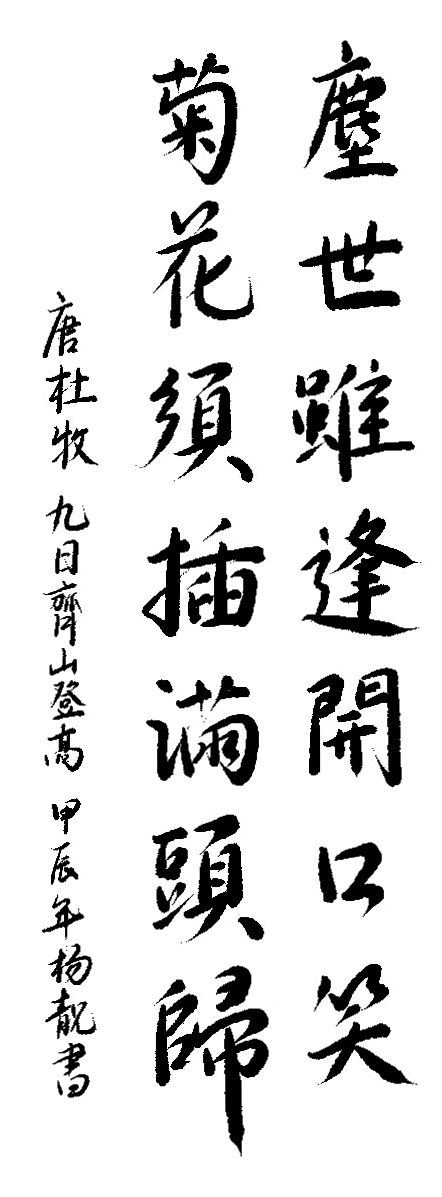 塵世雖逢開口笑
菊花須插滿頭歸
唐杜牧 九日齊山登高 甲辰年杨靓書